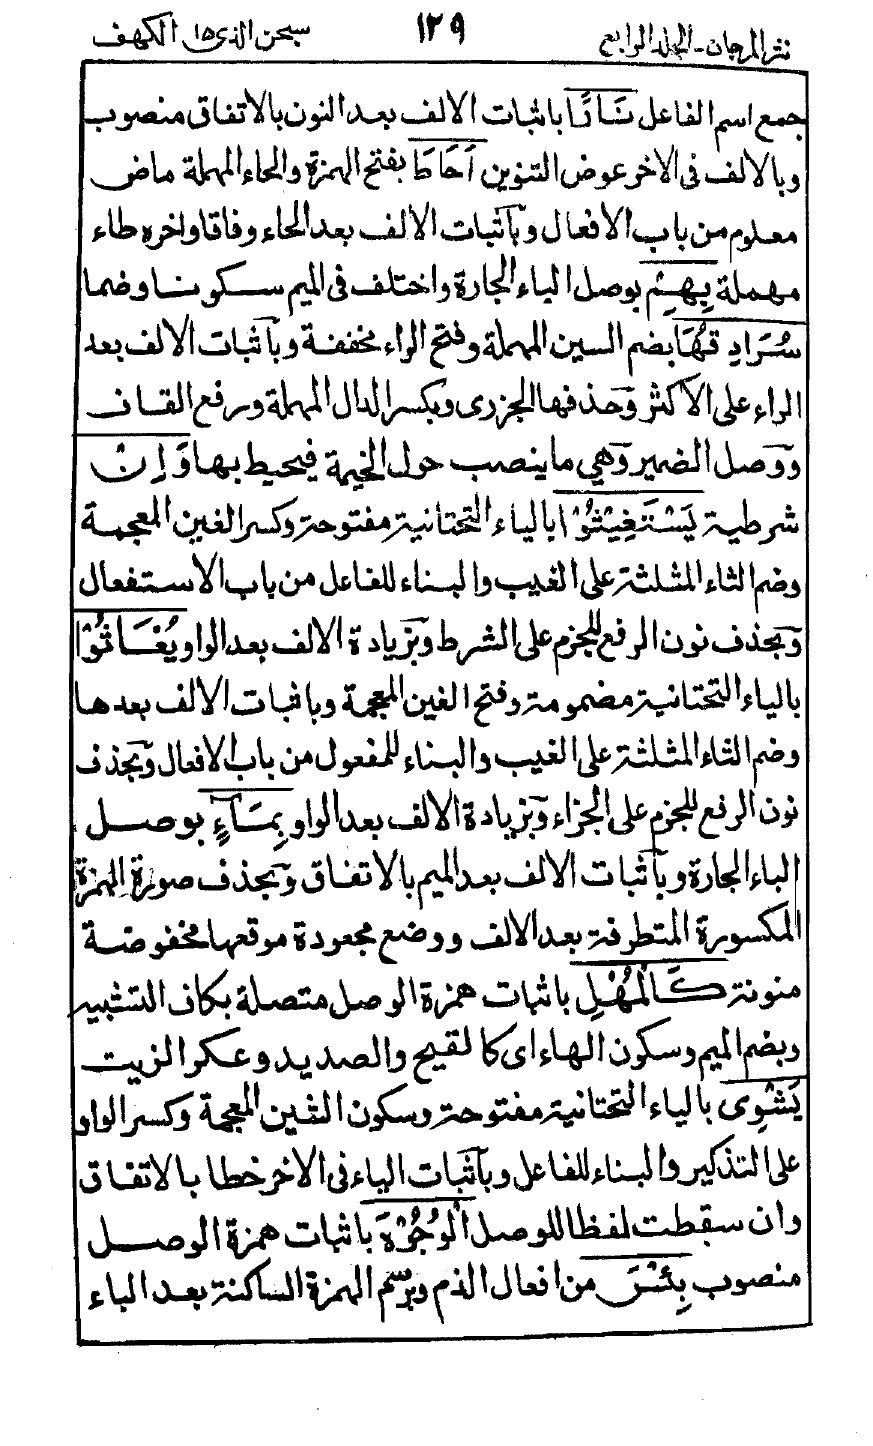 نثر المرجان - الجلد الرابع ١٢٩ سبحن الذى ١٥ الكهف
جمع اسم الفاعل نَارًا باثبات الالف بعد النون بالاتفاق منصوب
وبالالف فى الاخر عوض التنوين اَحَاطَ بفتح الهمزة والحاء المهملة ماض
معلوم من باب الافعال وباثبات الالف بعد الحاء وفاقا واخره طاء
مهملة بِهِمْ بوصل الباء الجارة واختلف فى الميم سكونا وضما
سُرَادِقُهَا بضم السين المهملة وفتح الراء مخففة وباثبات الالف بعد
الراء على الاكثر وحذفها الجزرى وبكسر الدال المهملة ورفع القاف
ووصل الضمير وهي ما ينصب حول الخيمة فيحيط بها وَاِنْ
شرطية يَسْتَغِيْثُوْا بالياء التحتانية مفتوحة وكسر الغين المعجمة
وضم الثاء المثلثة على الغيب والبناء للفاعل من باب الاستفعال
وبحذف نون الرفع للجزم على الشرط وبزيادة الالف بعد الواو يُغَاثُوْا
بالياء التحتانية مضمومة وفتح الغين المعجمة وباثبات الالف بعدها
وضم الثاء المثلثة على الغيب والبناء للمفعول من باب الافعال وبحذف
نون الرفع للجزم على الجزاء وبزيادة الالف بعد الواو بِمَآءٍ بوصل
الباء الجارة وباثبات الالف بعد الميم بالاتفاق وبحذف صورة الهمزة
المكسورة المتطرفة بعد الالف ووضع مجعودة موقعها مخفوضة
منونة كَالْمُهْلِ باثبات همزة الوصل متصلة بكاف التشبيه
وبضم الميم وسكون الهاء اى كالقيح والصديد وعكر الزيت
يَشْوِى بالياء التحتانية مفتوحة وسكون الشين المعجمة وكسر الواو
على التذكير والبناء للفاعل وباثبات الياء فى الاخر خطا بالاتفاق
وان سقطت لفظا للوصل الْوُجُوْهَ باثبات همزة الوصل
منصوب بِئْسَ من افعال الذم وبرسم الهمزة الساكنة بعد الباء